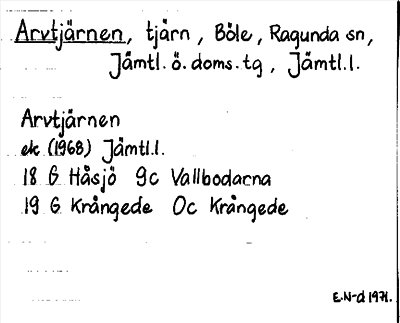 Arvtjärnen, tjärn, Böle, Ragunda sn,
Jämtl. ö. doms. tg, Jämtl.l.
Arvtjärnen
ek (1968) Jämtl.l.
18 G Håsjö 9c Vallbodarna
19 G Krångede 0c Krångede
E.N-d 1971.